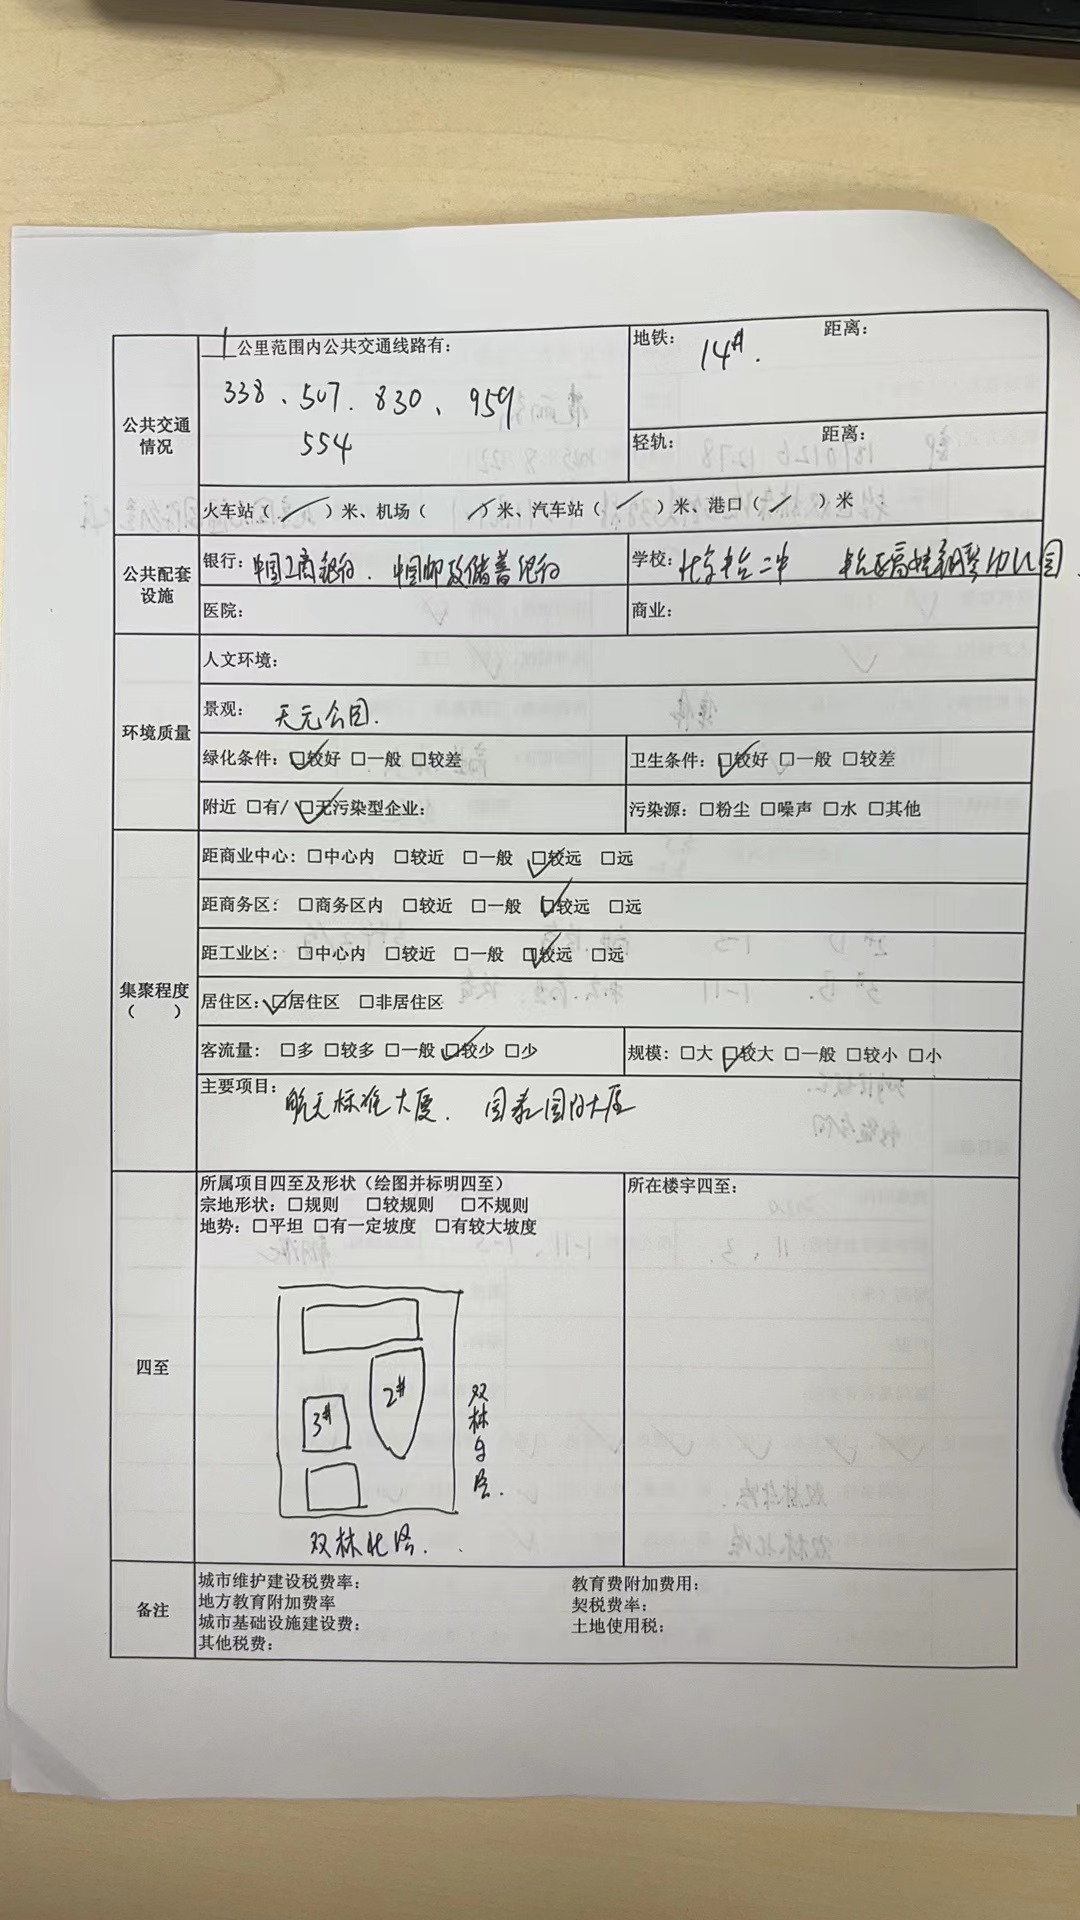 公共交通情况
1公里范围内公共交通线路有：
338、507、830、959
554
地铁： 14# 距离：
轻轨： 距离：
火车站（／）米、机场（／）米、汽车站（／）米、港口（／）米
公共配套设施
银行：中国工商银行、中国邮政储蓄银行
学校：北京丰台二中
医院：
商业：
环境质量
人文环境：
景观：天元公园.
绿化条件：☑较好 □一般 □较差
卫生条件：☑较好 □一般 □较差
附近 □有/ ☑无污染型企业：
污染源：□粉尘 □噪声 □水 □其他
集聚程度（ ）
距商业中心：□中心内 □较近 □一般 ☑较远 □远
距商务区：□商务区内 □较近 □一般 ☑较远 □远
距工业区：□中心内 □较近 □一般 ☑较远 □远
居住区：☑居住区 □非居住区
客流量：□多 □较多 □一般 ☑较少 □少
规模：□大 ☑较大 □一般 □较小 □小
主要项目：航天标准大厦. 国泰国际大厦
四至
所属项目四至及形状（绘图并标明四至）
宗地形状：□规则 □较规则 □不规则
地势：□平坦 □有一定坡度 □有较大坡度
2#
3#
双林东路.
双林北路.
所在楼宇四至：
备注
城市维护建设税费率： 教育费附加费用：
地方教育附加费率 契税费率：
城市基础设施建设费： 土地使用税：
其他税费：